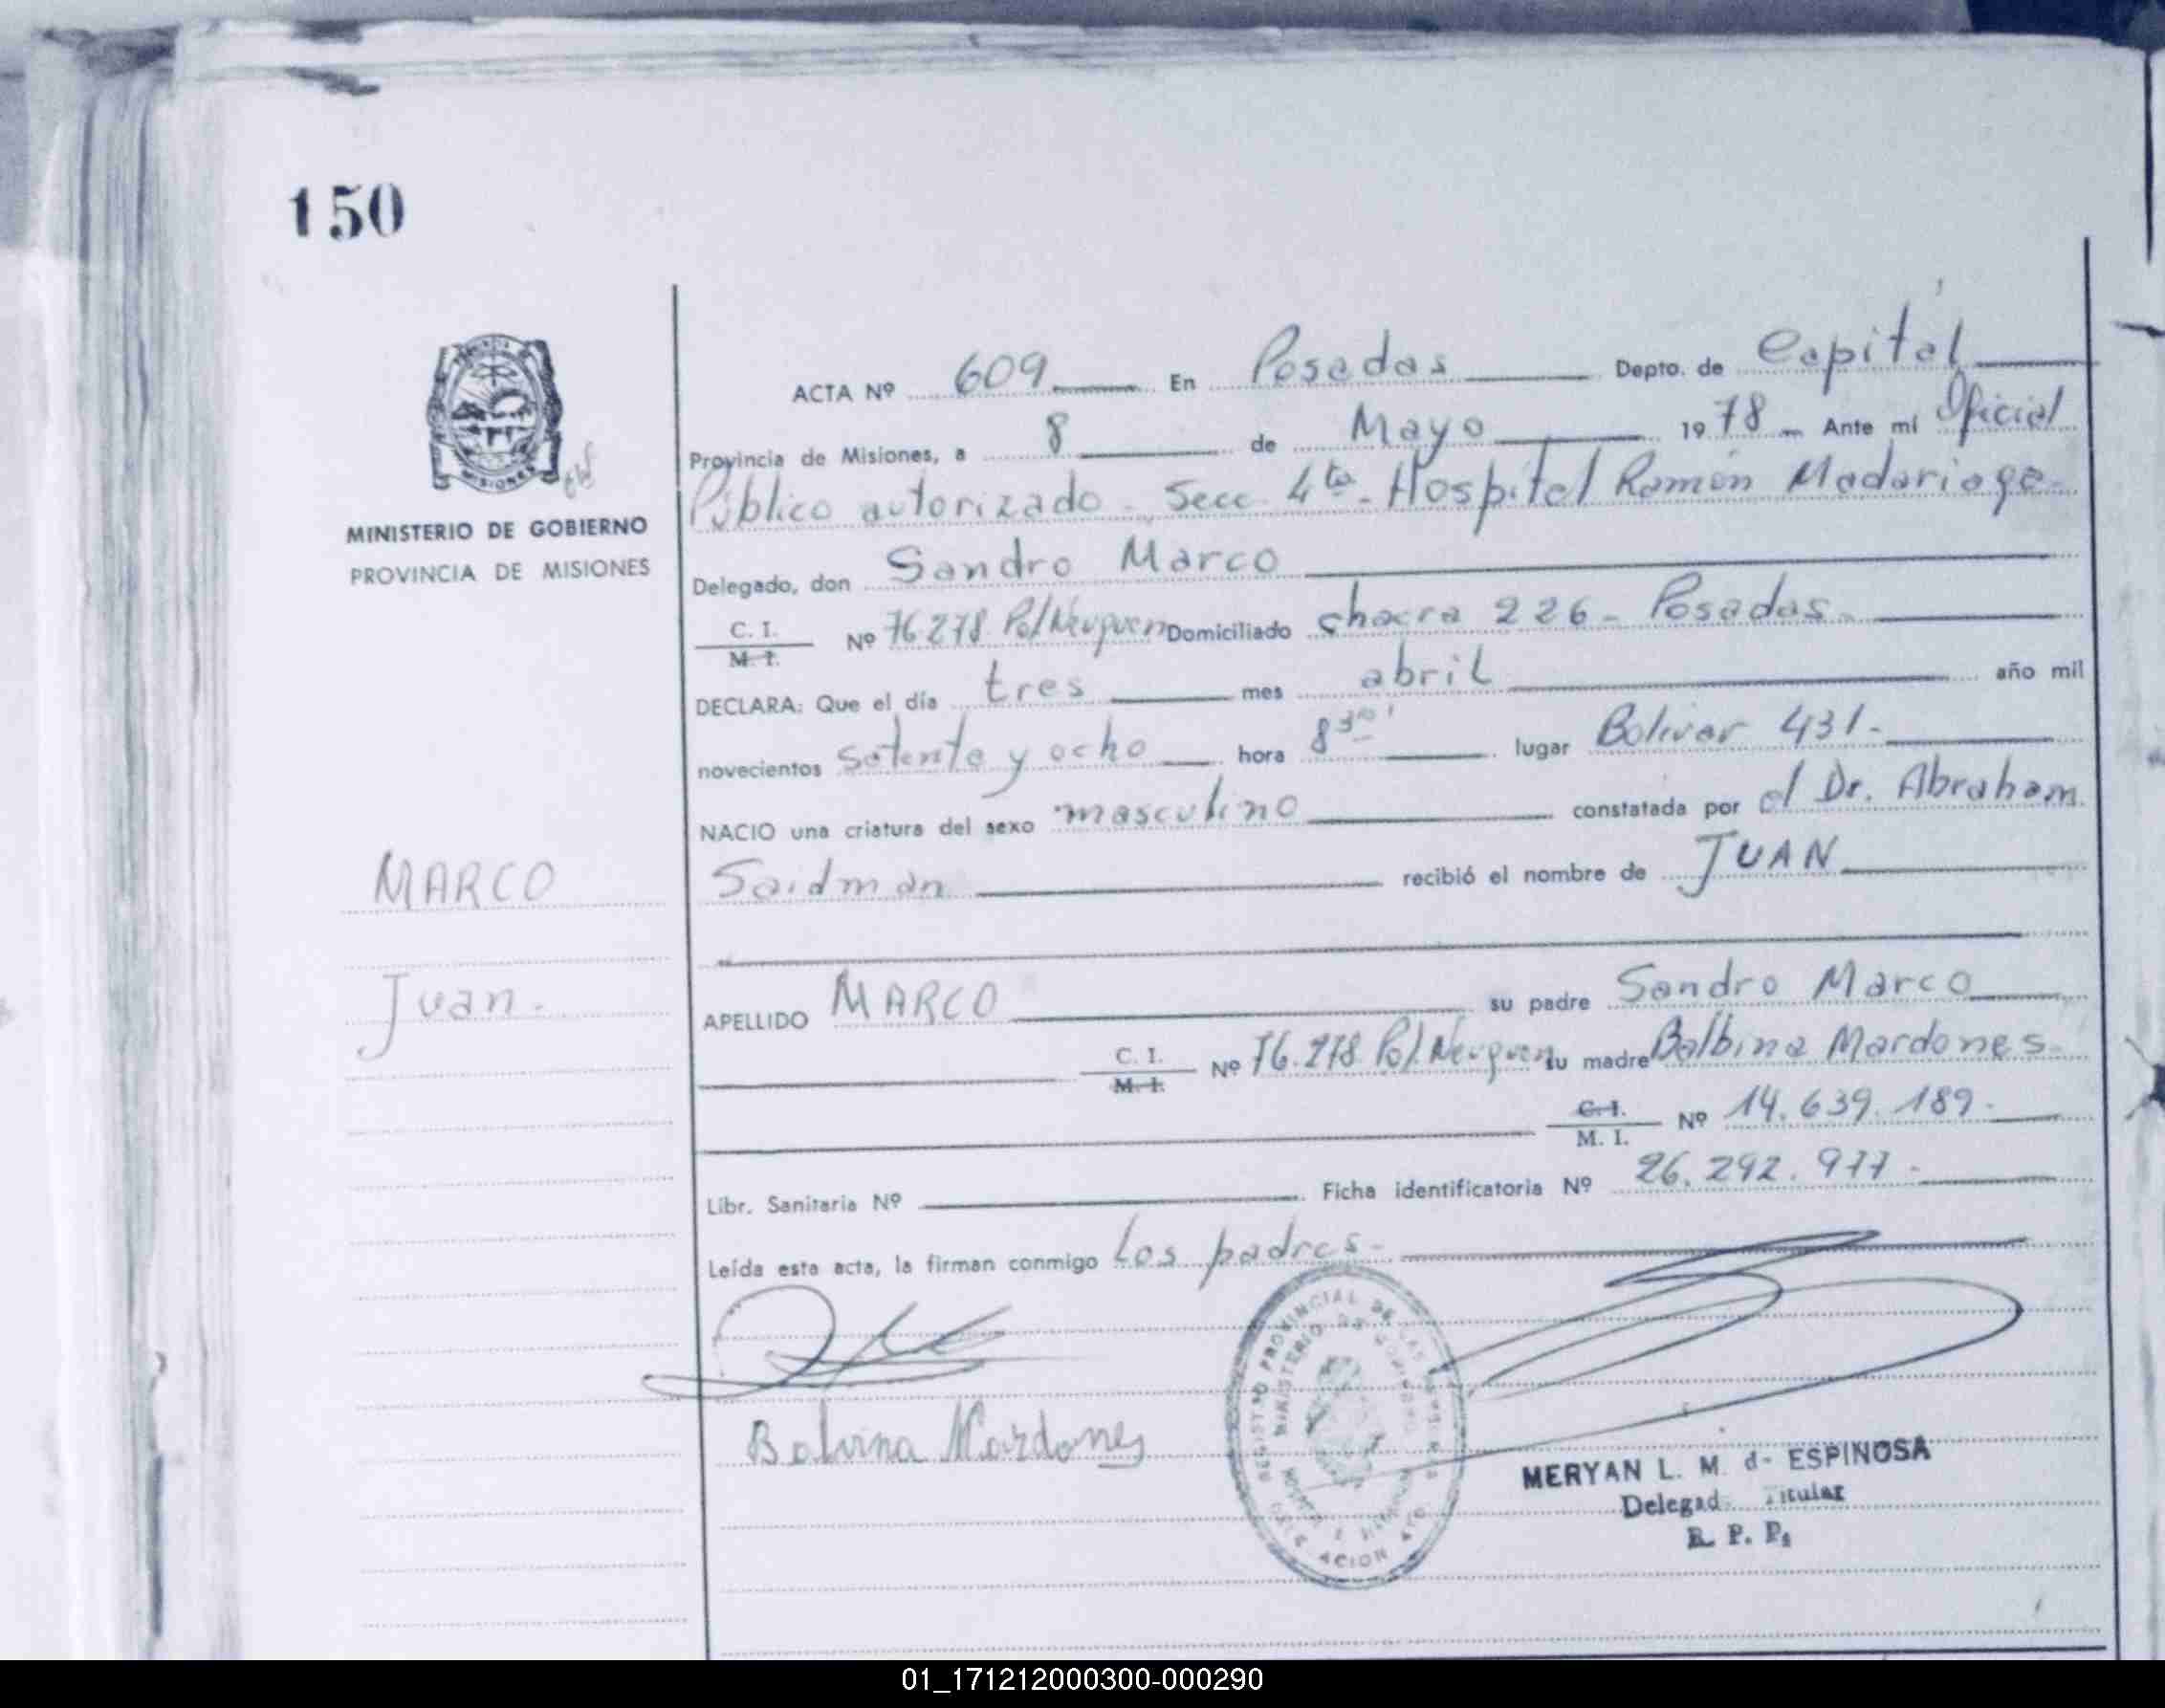 150
ACTA Nº 609 En Posadas Depto. de Capital
Provincia de Misiones, a 8 de Mayo 1978 Ante mí Oficial
Público autorizado - Secc 4ta - Hospital Ramón Madariaga -
MINISTERIO DE GOBIERNO
PROVINCIA DE MISIONES
Delegado, don Sandro Marco
C. I. Nº 76278 Pol Neuquen Domiciliado chacra 226 - Posadas -
M. I.
DECLARA: Que el día tres mes abril año mil
novecientos setenta y ocho hora 8 30' lugar Bolivar 431 -
NACIO una criatura del sexo masculino constatada por el Dr. Abraham
MARCO
Saidman recibió el nombre de JUAN
Juan -
APELLIDO MARCO su padre Sandro Marco
C. I. Nº 76.278 Pol. Neuquen su madre Balbina Mardones -
M. I.
C. I. Nº 14.639.189 -
M. I.
Libr. Sanitaria Nº Ficha identificatoria Nº 26.292.977 -
Leída esta acta, la firman conmigo Los padres -
REGISTRO PROVINCIAL DE LAS PERSONAS
MINISTERIO DE GOBIERNO
Balvina Mardones
MERYAN L. M. d- ESPINOSA
Delegad Titular
R. P. P.
01_171212000300-000290